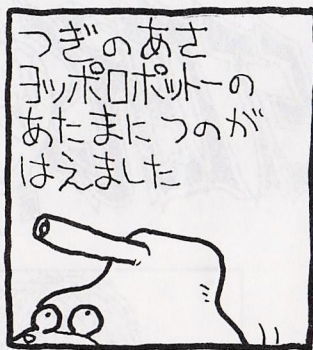 つぎのあさ
ヨッポロポットーの
あたまにつのが
はえました